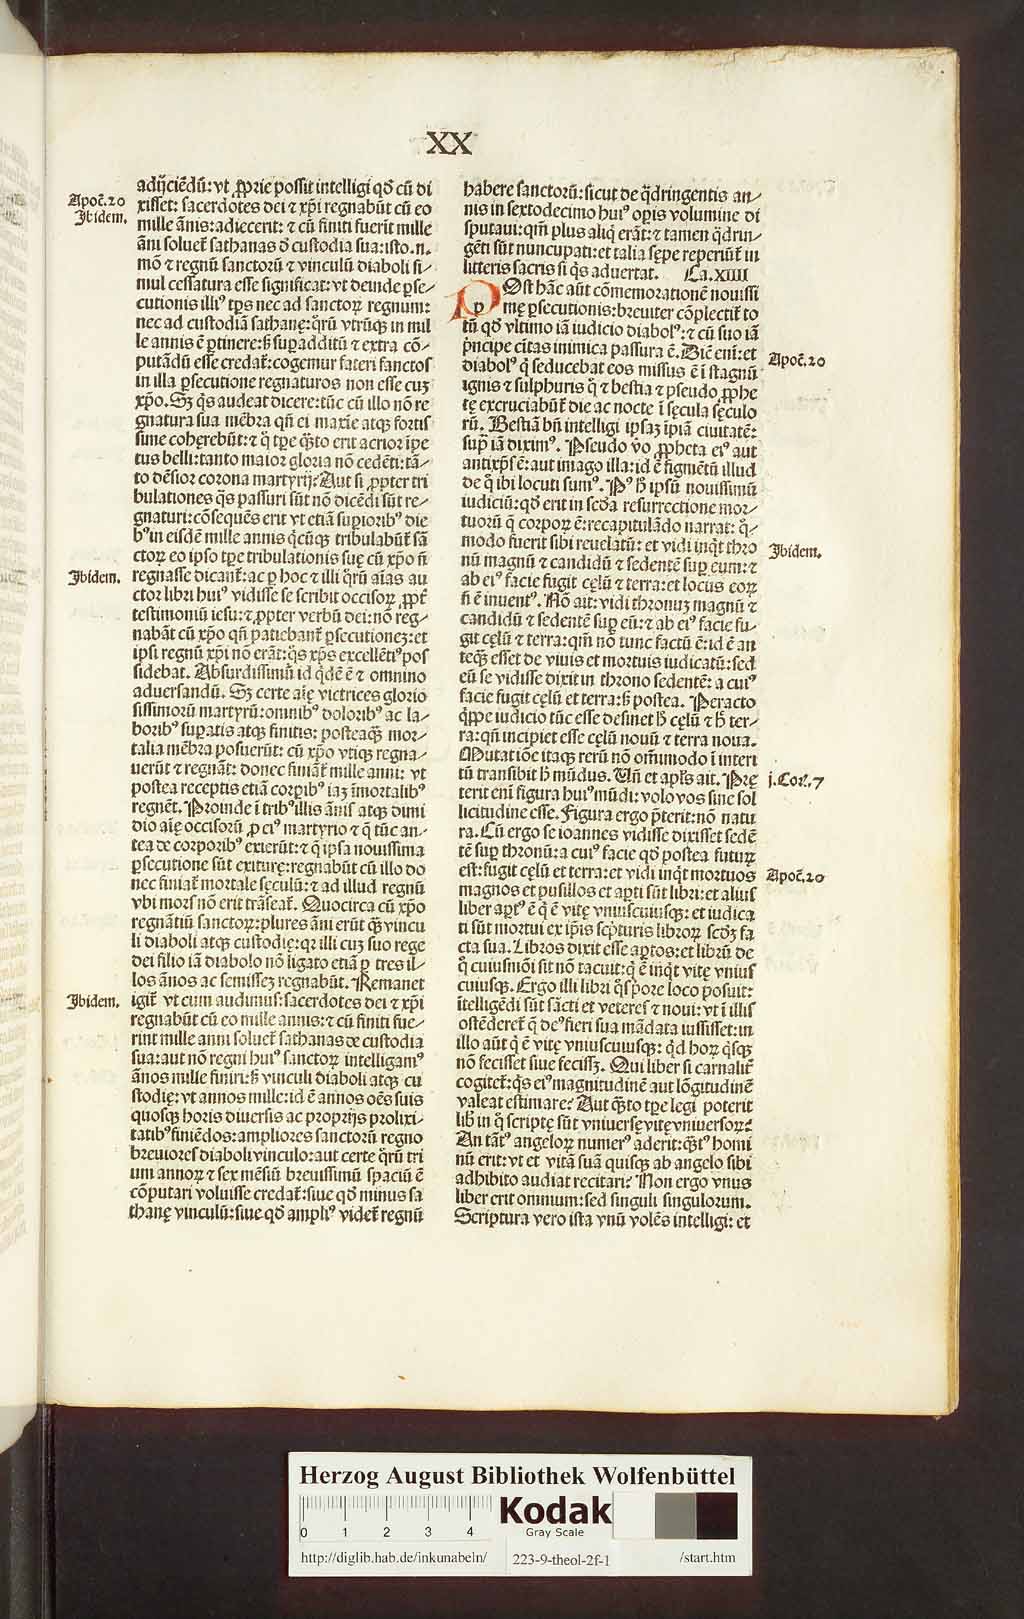 XX
Apoc̄.20
Ibidem.
adijciēdū: vt ꝓprie possit intelligi qd̓ cū di
xisset: sacerdotes dei ⁊ xp̄i regnabūt cū eo
mille ānis: adiecerit: ⁊ cū finiti fuerit mille
āni soluet̄ sathanas d̓ custodia sua: isto .n.
mō ⁊ regnū sanctorū ⁊ vinculū diaboli si⸗
mul cessatura esse significat: vt deinde ꝑse⸗
cutionis illiꝰ tꝑs nec ad sanctoꝝ regnum:
nec ad custodiā sathanę: qͥrū vtrūqꝫ in mil
le annis ē ꝑtinere: sꝫ suꝑadditū ⁊ extra cō⸗
putādū esse credat̄: cogemur fateri sanctos
in illa ꝑsecutione regnaturos non esse cuꝫ
xp̄o. Sꝫ qͥs audeat dicere: tūc cū illo nō re
gnatura sua mēbra qn̄ ei maxīe atqꝫ fortis
sime cohęrebūt: ⁊ qͦ tꝑe qͣto erit acrior īpe
tus belli: tanto maior gloria nō cedēti: tā⸗
to dēsior corona martyrij? Aut si ꝓpter tri
bulationes qͣs passuri sūt nō dicēdi sūt re⸗
gnaturi: cōsequēs erit vt etiā suꝑioribꝰ die
bꝰ in eisdē mille annis qͥcūqꝫ tribulabūt̄ sā
ctoꝝ eo ipso tꝑe tribulationis suę cū xp̄o n̄
Ibidem.
regnasse dicant̄: ac ꝑ hoc ⁊ illi qͥrū aīas au
ctor libri huiꝰ vidisse se scribit occisoꝝ ꝓpt̄
testimoniū iesu: ⁊ ꝓpter verbū dei: nō reg⸗
nabāt cū xp̄o qn̄ patiebant̄ ꝑsecutioneꝫ: et
ipsi regnū xp̄i nō erāt: qͦs xp̄s excellētiꝰ pos
sidebat. Absurdissimū id qͥdē ē ⁊ omnino
aduersandū. Sꝫ certe aīę victrices glorio
sissimorū martyrū: omnibꝰ doloribꝰ ac la⸗
boribꝰ suꝑatis atqꝫ finitis: posteaqͣꝫ mor⸗
talia mēbra posuerūt: cū xp̄o vtiqꝫ regna⸗
uerūt ⁊ regnāt: donec finiāt̄ mille anni: vt
postea receptis etiā corꝑibꝰ iaꝫ īmortalibꝰ
regnēt. Proinde ī tribꝰ illis ānis atqꝫ dimi
dio aīę occisorū ꝓ eiꝰ martyrio ⁊ qͥ tūc an⸗
tea de corporibꝰ exierūt: ⁊ qͥ ipsa nouissima
ꝑsecutione sūt exiturę: regnabūt cū illo do
nec finiat̄ mortale sęculū: ⁊ ad illud regnū
vbi mors nō erit trāseat̄. Quocirca cū xp̄o
regnātiū sanctoꝝ: plures āni erūt qͣꝫ vincu
li diaboli atqꝫ custodię: qꝛ illi cuꝫ suo rege
dei filio iā diabolo nō ligato etiā ꝑ tres il⸗
los ānos ac semisseꝫ regnabūt. Remanet
Ibidem.
igit̄ vt cum audimus: sacerdotes dei ⁊ xp̄i
regnabūt cū eo mille annis: ⁊ cū finiti fue⸗
rint mille anni soluet̄ sathanas de custodia
sua: aut nō regni huiꝰ sanctoꝝ intelligamꝰ
ānos mille finiri: sꝫ vinculi diaboli atqꝫ cu
stodię: vt annos mille: id ē annos oēs suis
quosqꝫ horis diuersis ac proprijs prolixi⸗
tatibꝰ finiēdos: ampliores sanctorū regno
breuiores diaboli vinculo: aut certe qͥrū tri
um annoꝝ ⁊ sex mēsiū breuissimū spaciū ē
cōputari voluisse credat̄: siue qd̓ minus sa
thanę vinculū: siue qd̓ ampliꝰ videt̄ regnū
habere sanctorū: sicut de qͣdringentis an⸗
nis in sextodecimo huiꝰ oꝑis volumine di
sputaui: qm̄ plus aliqͥ erāt: ⁊ tamen qͣdrin⸗
gēti sūt nuncupati: et talia sępe reperiūt̄ in
litteris sacris si qͥs aduertat. Ca.XIIII
POst hāc aūt cōmemorationē nouissi
mę ꝑsecutionis: breuiter cōplectit̄ to
tū qd̓ vltimo iā iudicio diabolꝰ: ⁊ cū suo iā
pͥncipe ciuitas inimica passura ē. Dic̄ eni: et
Apoc̄.20
diabolꝰ qͥ seducebat eos missus ē ī stagnū
ignis ⁊ sulphuris qͦ ⁊ bestia ⁊ pseudo ꝓphe
tę excruciabūt̄ die ac nocte ī sęcula sęculo
rū. Bestiā bn̄ intelligi ipsaꝫ īpiā ciuitatē:
supͣ iā diximꝰ. Pseudo vo ꝓpheta eiꝰ aut
antixp̄s ē: aut imago illa: id ē figmētū illud
de qͦ ibi locuti sumꝰ. Pꝰ h̓ ipsū nouissimū
iudiciū: qd̓ erit in scd̓a resurrectione mor⸗
tuorū qͥ corpoꝝ ē: recapitulādo narrat: qͦ⸗
modo fuerit sibi reuelatū: et vidi inqͥt thro
Ibidem.
nū magnū ⁊ candidū ⁊ sedentē suꝑ eum: ⁊
ab eiꝰ facie fugit cęlū ⁊ terra: et locus eoꝝ
n̄ ē inuentꝰ. Nō ait: vidi thronuꝫ magnū ⁊
candidū ⁊ sedentē suꝑ eū: ⁊ ab eiꝰ facie fu⸗
git cęlū ⁊ terra: qm̄ nō tunc factū ē: id ē an
teqͣꝫ esset de viuis et mortuis iudicatū: sed
eū se vidisse dixit in throno sedentē: a cuiꝰ
facie fugit cęlū et terra: sꝫ postea. Peracto
qͥppe iudicio tūc esse desinet h̓ cęlū ⁊ h̓ ter⸗
ra: qn̄ incipiet esse cęlū nouū ⁊ terra noua.
Mutatiōe itaqꝫ rerū nō om̄modo ī interi
tū transibit h̓ mūdus. Vn̄ et apl̄s ait. Prę
j.Cor̄.7
terit enī figura huiꝰ mūdi: volo vos sine sol
licitudine esse. Figura ergo p̄terit: nō natu
ra. Cū ergo se ioannes vidisse dixisset sedē
tē suꝑ thronū: a cuiꝰ facie qd̓ postea futuꝝ
est: fugit cęlū et terra: et vidi inqͥt mortuos
Apoc̄.20
magnos et pusillos et aꝑti sūt libri: et alius
liber aꝑtꝰ ē qͥ ē vitę vniuscuiusqꝫ: et iudica
ti sūt mortui ex ip̄is scpturis libroꝝ scd̓ꝫ fa
cta sua. Libros dixit esse aꝑtos: et librū de
qͦ cuiusmōi sit nō tacuit: qͥ ē inqͥt vitę vnius
cuiusqꝫ. Ergo illi libri qͦs pͥore loco posuit:
ītelligēdi sūt sācti et veteres ⁊ noui: vt ī illis
ostēderet̄ qͥ deꝰ fieri sua mādata iussisset: in
illo aūt qͥ ē vitę vniuscuiusqꝫ: qͥd hoꝝ qͥsqꝫ
nō fecisset siue fecissꝫ. Qui liber si carnalit̄
cogitet̄: qͥs eiꝰ magnitudinē aut lōgitudinē
valeat estimare? Aut qͣto tꝑe legi poterit
lib̄ in qͦ scriptę sūt vniuersę vitę vniuersoꝝ?
An tātꝰ angeloꝝ numerꝰ aderit: qͣtꝰ homi
nū erit: vt et vitā suā quisqꝫ ab angelo sibi
adhibito audiat recitari? Non ergo vnus
liber erit omnium: sed singuli singulorum.
Scriptura vero ista vnū volēs intelligi: et
Herzog August Bibliothek Wolfenbüttel
0 1 2 3 4
Kodak
Gray Scale
http://diglib.hab.de/inkunabeln/ 223-9-theol-2f-1 /start.htm